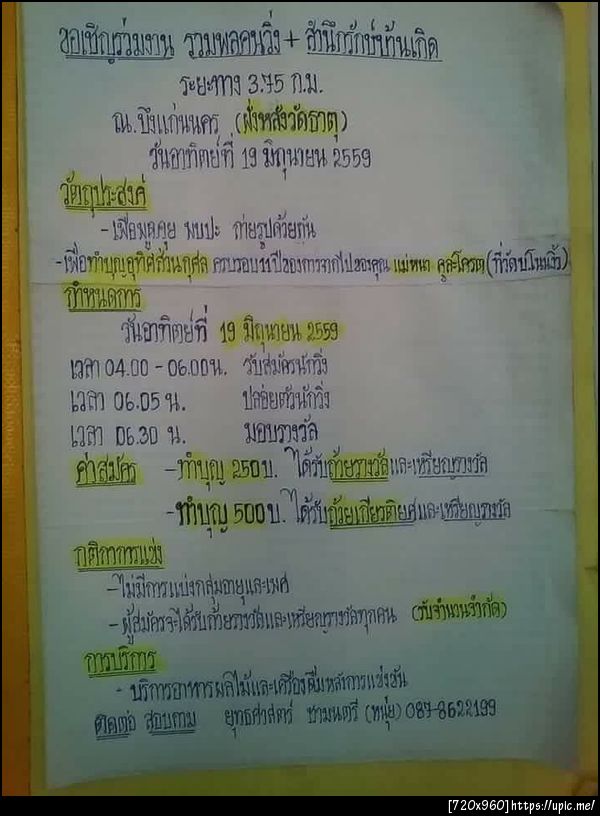 ขอเชิญร่วมงาน รวมพลคนวิ่ง + สำนึกรักษ์บ้านเกิด
ระยะทาง 3.75 ก.ม.
ณ.บึงแก่นนคร (ฝั่งหลังวัดธาตุ)
วันอาทิตย์ที่ 19 มิถุนายน 2559
วัตถุประสงค์
-เพื่อพูดคุย พบปะ ถ่ายรูปด้วยกัน
-เพื่อทำบุญอุทิศส่วนกุศล ครบรอบ 11 ปีของการจากไปของคุณ แม่หนา (ที่วัดบ.โนนงิ้ว)
กำหนดการ
วันอาทิตย์ที่ 19 มิถุนายน 2559
เวลา 04.00 - 06.00 น. รับสมัครนักวิ่ง
เวลา 06.05 น. ปล่อยตัวนักวิ่ง
เวลา 06.30 น. มอบรางวัล
ค่าสมัคร -ทำบุญ 250 บ. ได้รับถ้วยรางวัลและเหรียญรางวัล
-ทำบุญ 500 บ. ได้รับถ้วยเกียรติยศและเหรียญรางวัล
กติกาการแข่ง
-ไม่มีการแบ่งกลุ่มอายุและเพศ
-ผู้สมัครจะได้รับถ้วยรางวัลและเหรียญรางวัลทุกคน (รับจำนวนจำกัด)
การบริการ
- บริการอาหารผลไม้และเครื่องดื่มหลังการแข่งขัน
ติดต่อ สอบถาม ยุทธศาสตร์ ชามนตรี (หนุ่ย) 087-8622199
[720x960]https://upic.me/